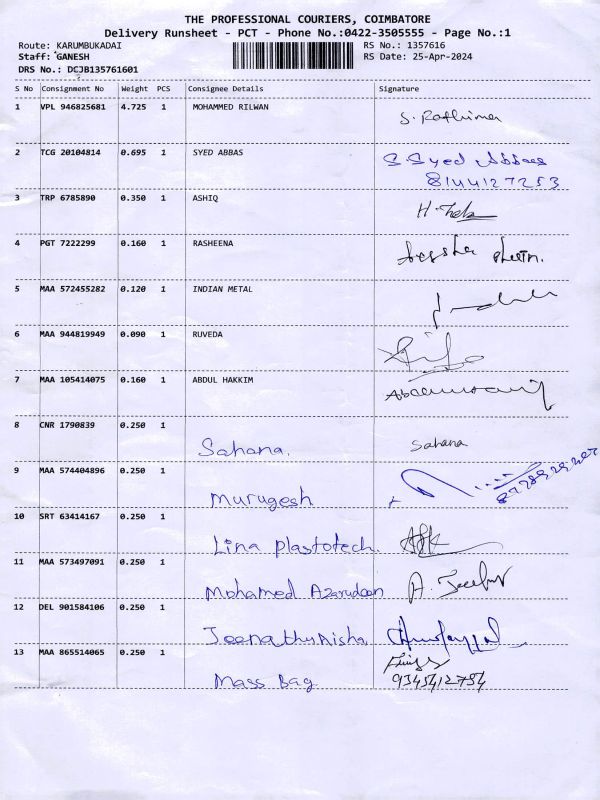 THE PROFESSIONAL COURIERS, COIMBATORE
Delivery Runsheet - PCT - Phone No.:0422-3505555 - Page No.:1
Route: KARUMBUKADAI RS No.: 1357616
Staff: GANESH RS Date: 25-Apr-2024
DRS No.: DCJB135761601
S No Consignment No Weight PCS Consignee Details Signature
1 VPL 946825681 4.725 1 MOHAMMED RILWAN S. Rathima
2 TCG 20104814 0.695 1 SYED ABBAS S. Syed Abbas
8144127253
3 TRP 6785890 0.350 1 ASHIQ
4 PGT 7222299 0.160 1 RASHEENA
5 MAA 572455282 0.120 1 INDIAN METAL
6 MAA 944819949 0.090 1 RUVEDA
7 MAA 105414075 0.160 1 ABDUL HAKKIM
8 CNR 1790839 0.250 1 Sahana. Sahana
9 MAA 574404896 0.250 1 Murugesh
10 SRT 63414167 0.250 1 Lina plastotech.
11 MAA 573497091 0.250 1 Mohamed Azarudeen
12 DEL 901584106 0.250 1 Jeenathu Nisha
13 MAA 865514065 0.250 1 Mass Bag
9345412754